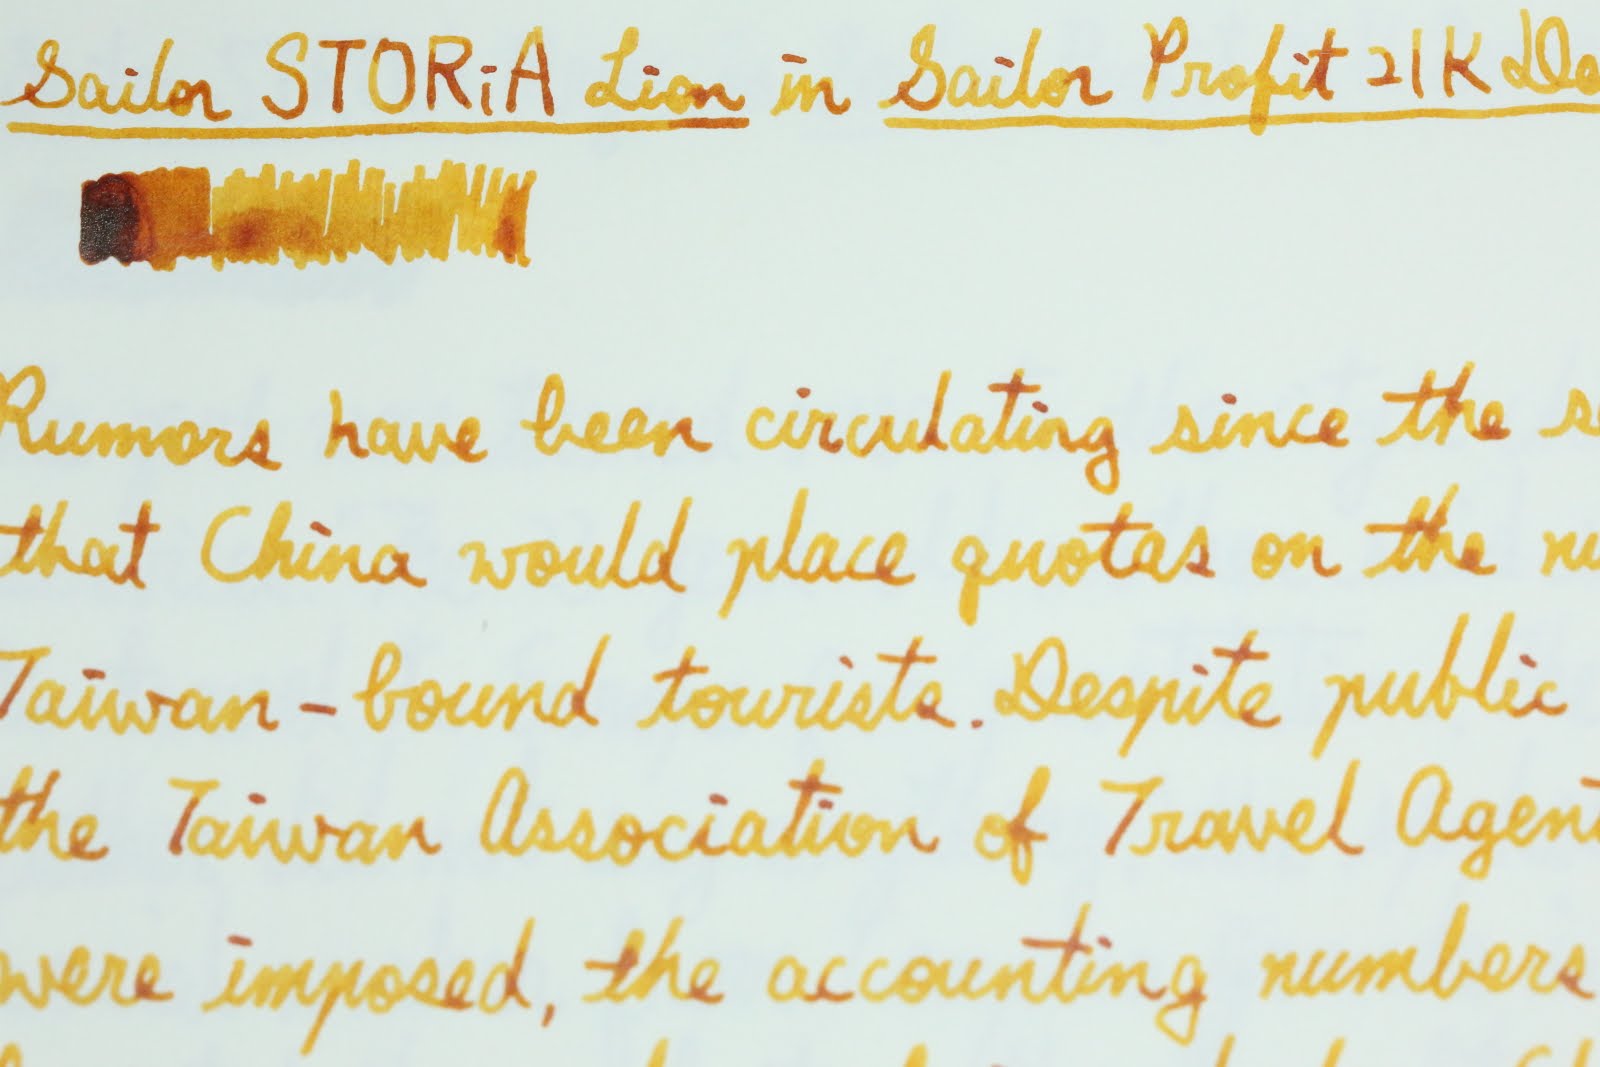 Sailor STORiA Lion in Sailor Profit 21K
Rumors have been circulating since the
that China would place quotas on the
Taiwan-bound tourists. Despite public
the Taiwan Association of Travel Agent
were imposed, the accounting numbers